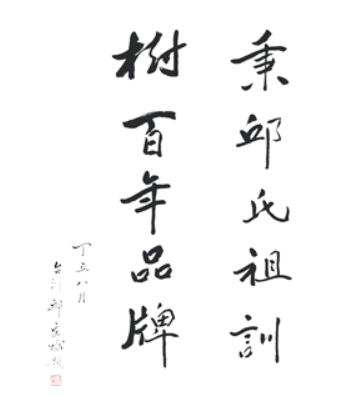 秉邱氏祖訓
樹百年品牌
丁丑八月